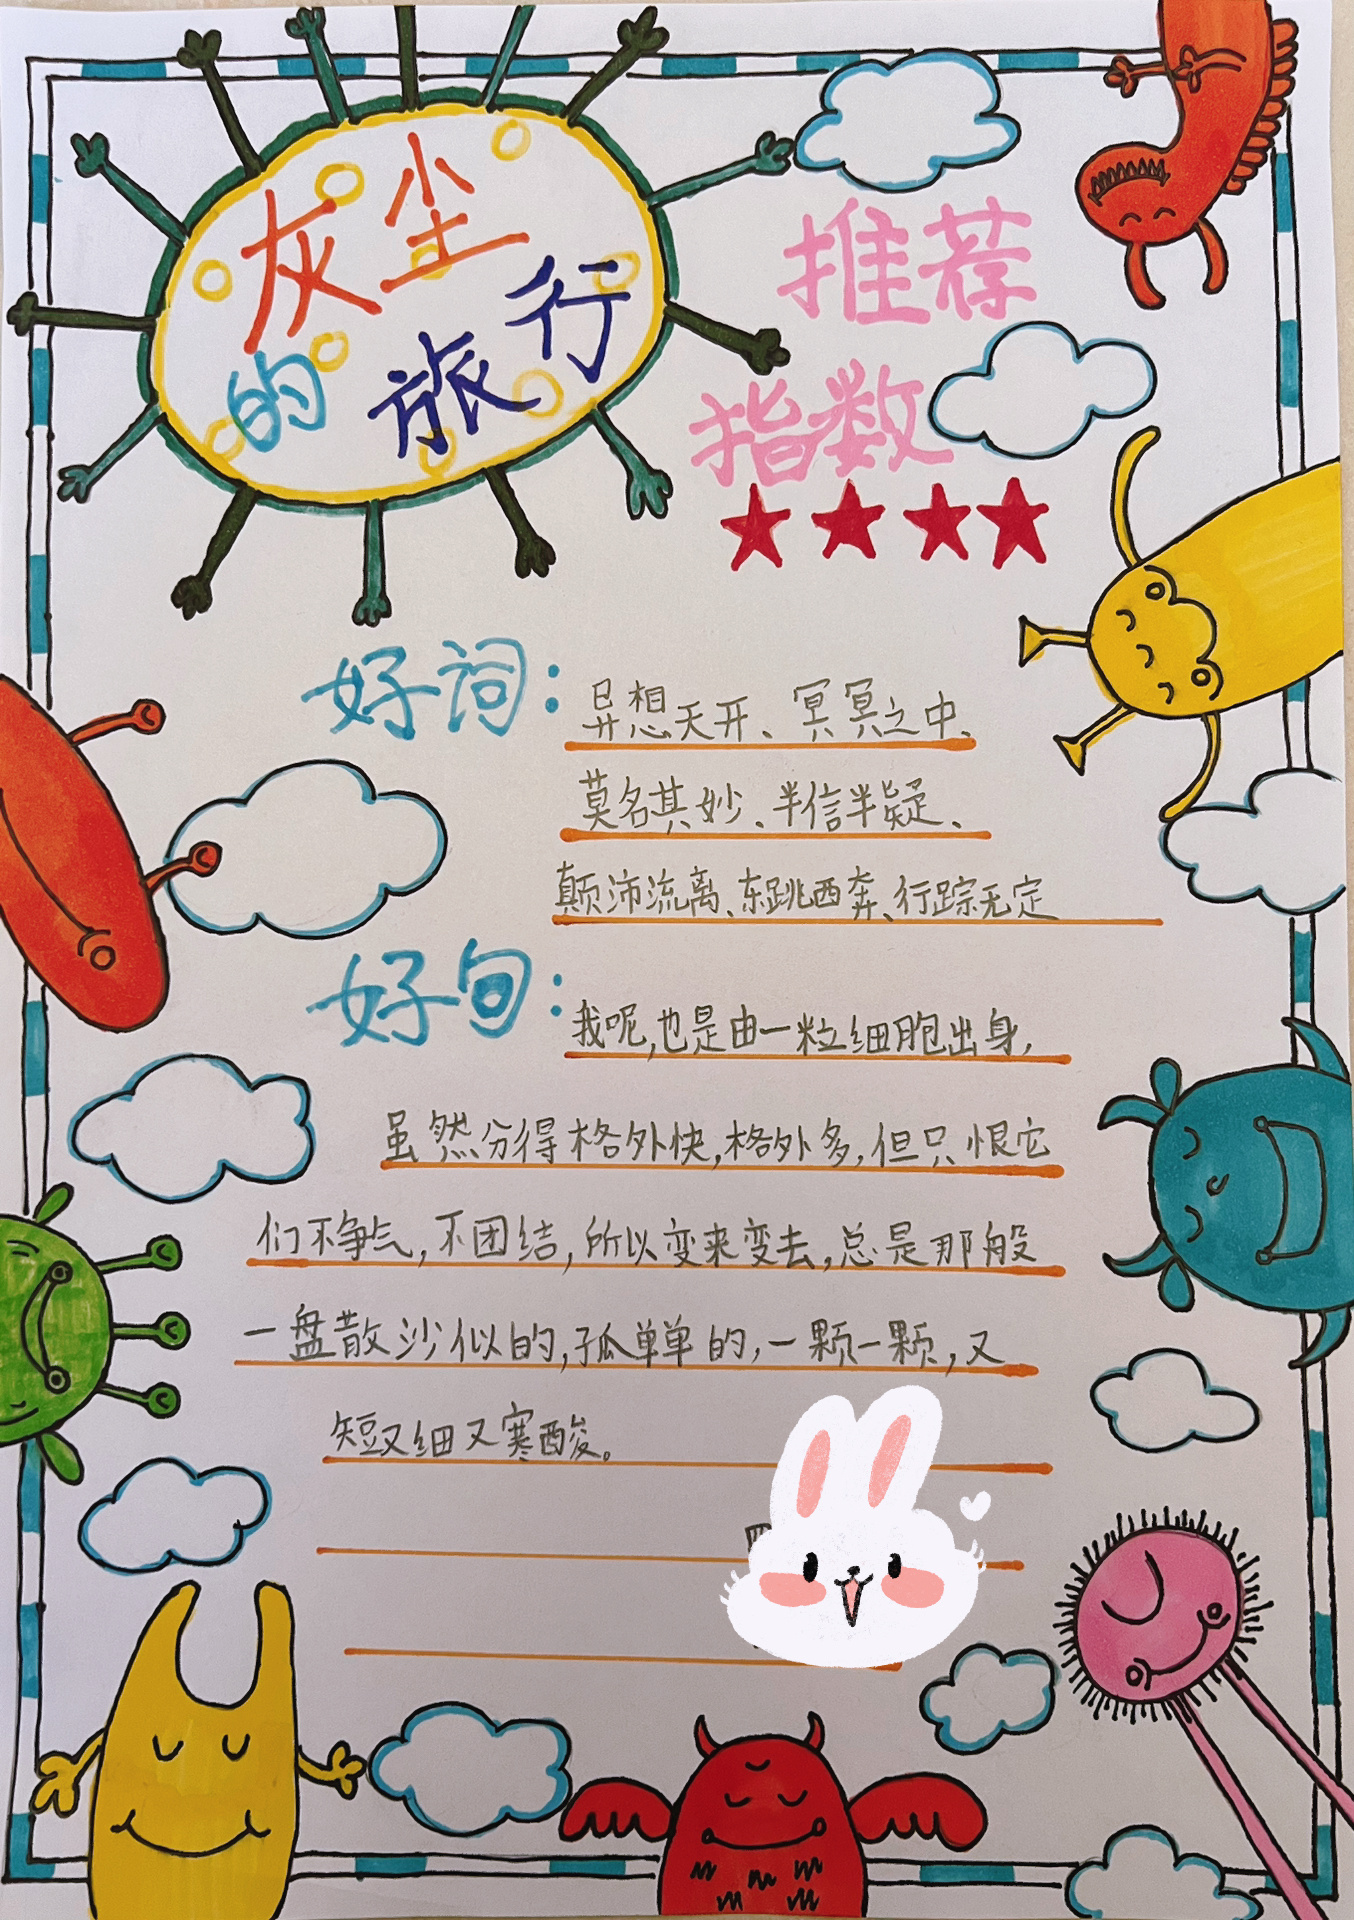 灰尘
的旅行
推荐
指数
★★★★
好词：异想天开、冥冥之中、
莫名其妙、半信半疑、
颠沛流离、东跳西奔、行踪无定
好句：我呢，也是由一粒细胞出身，
虽然分得格外快，格外多，但只恨它
们不争气，不团结，所以变来变去，总是那般
一盘散沙似的，孤单单的，一颗一颗，又
短又细又寒酸。